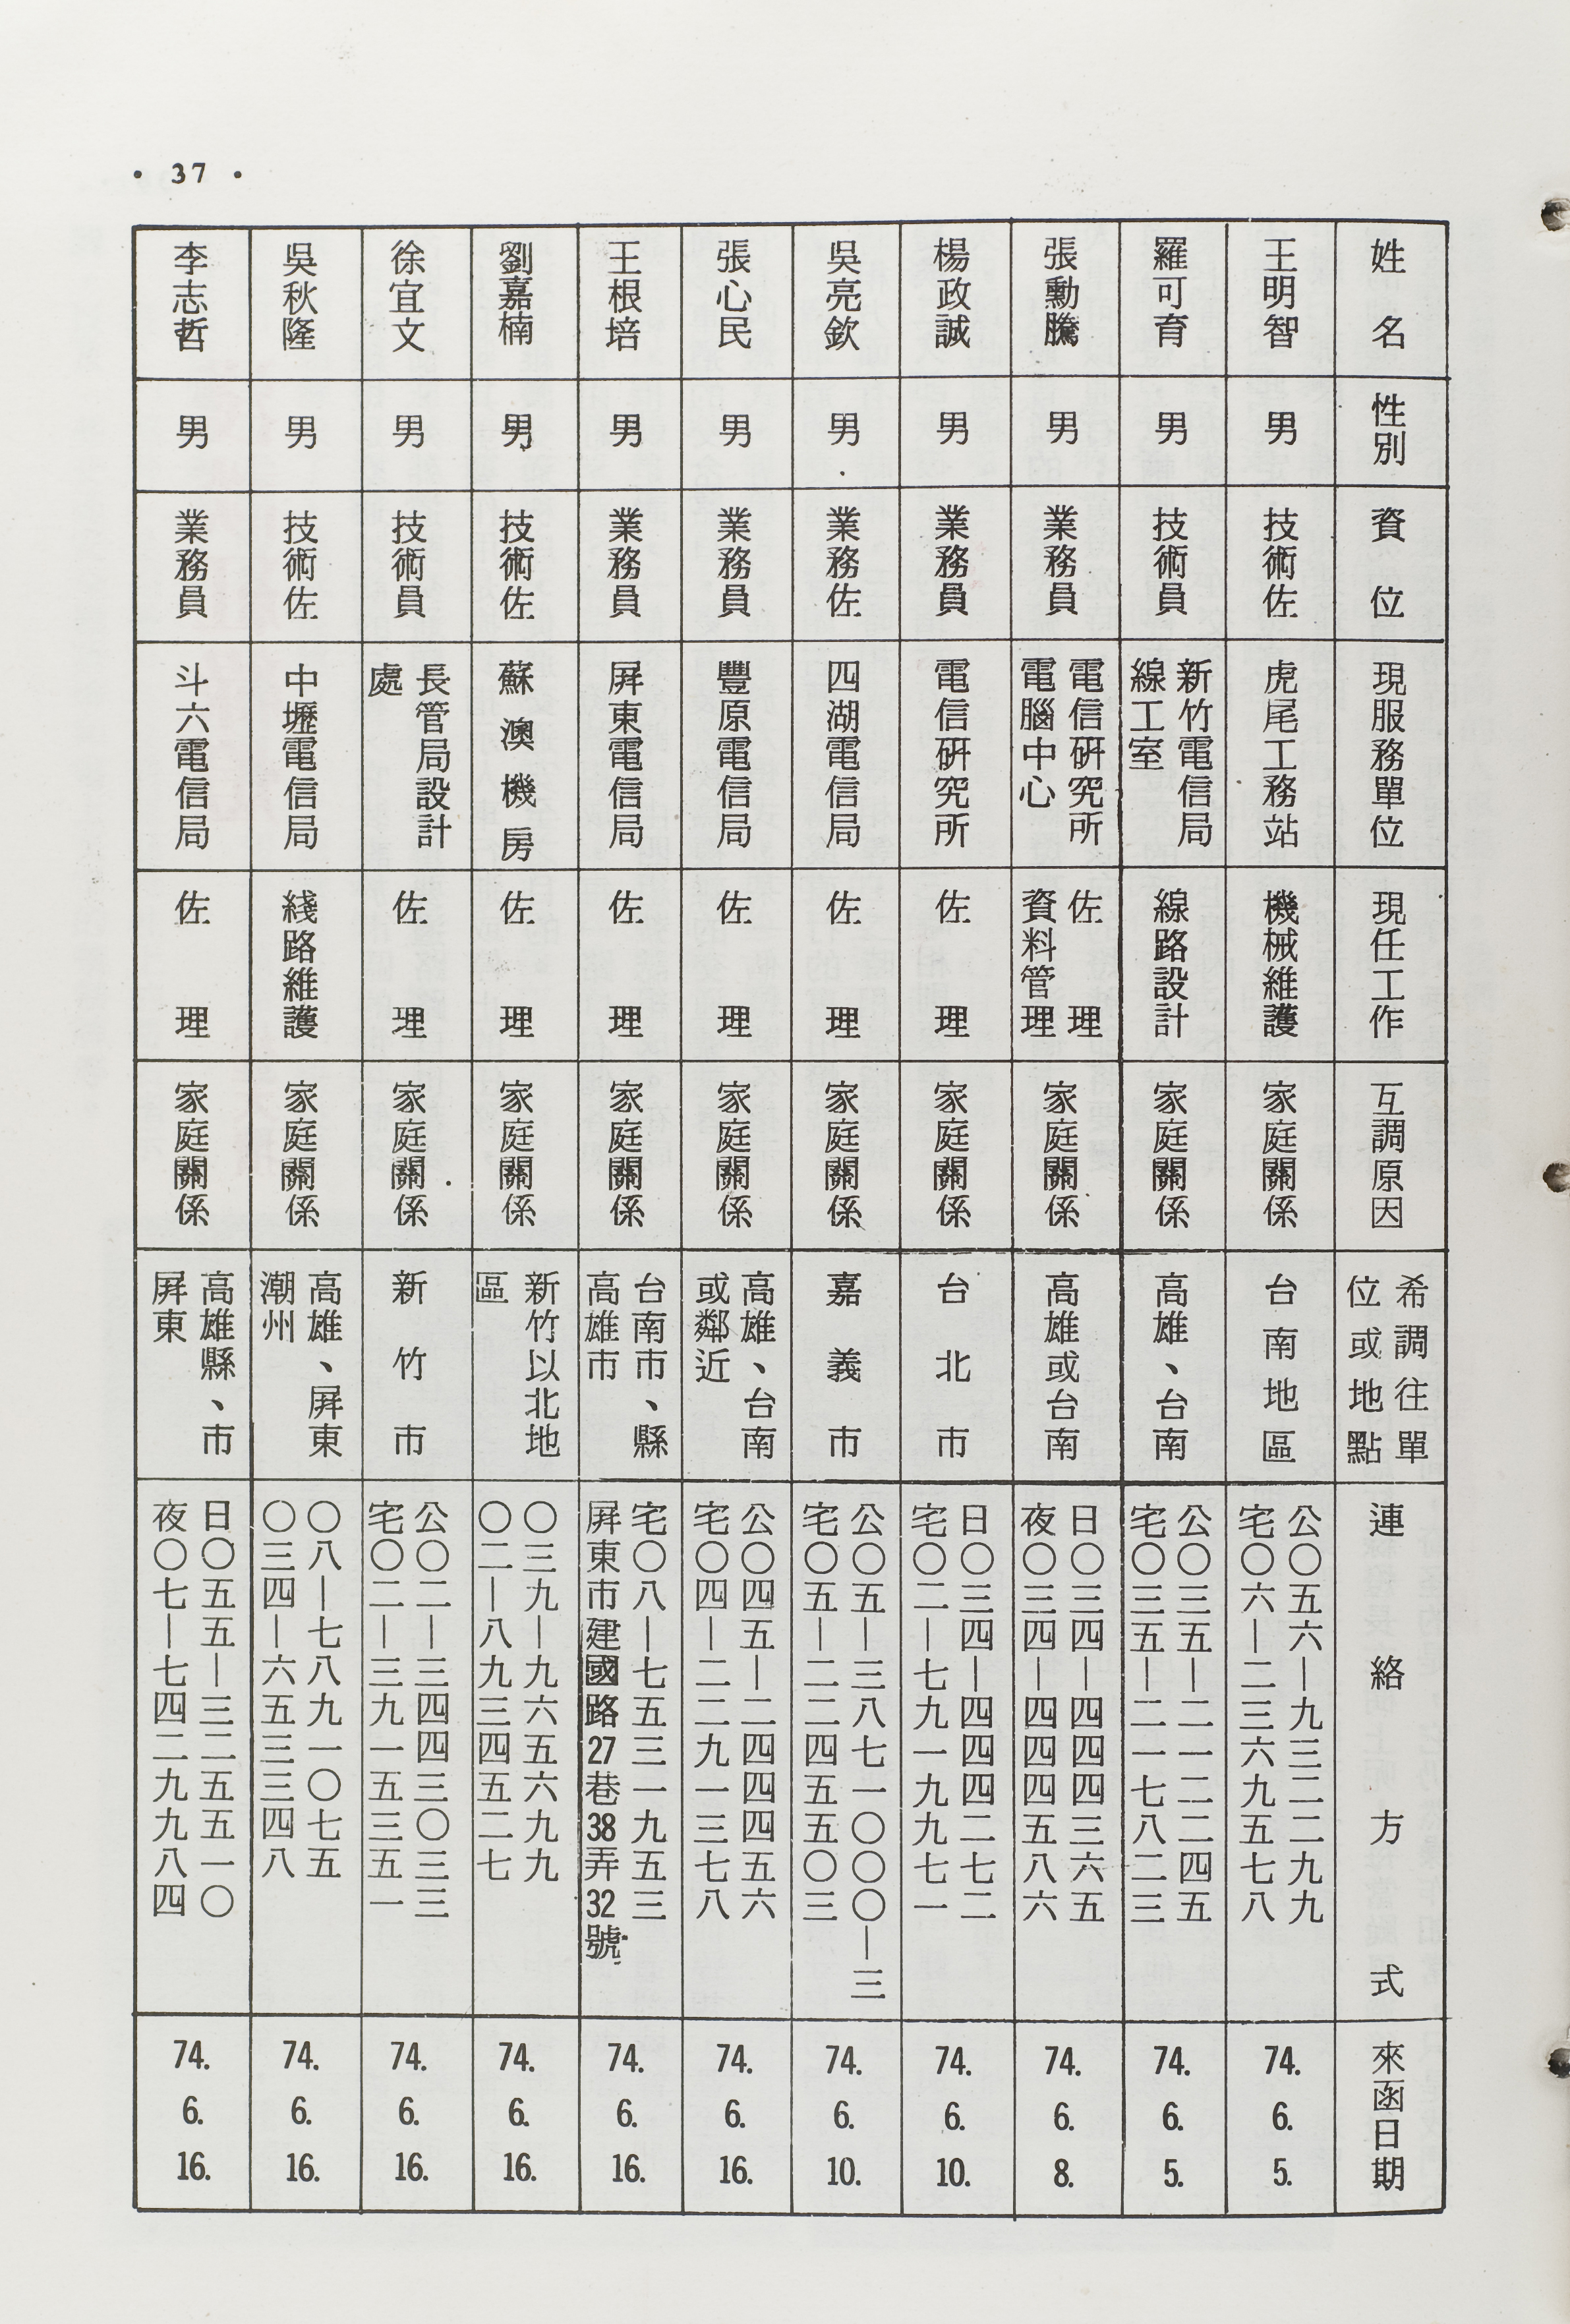 • 37 •
姓名
性別
資位
現服務單位
現任工作
互調原因
希調往單
位或地點
連絡方式
來函日期
王明智
男
技術佐
虎尾工務站
機械維護
家庭關係
台南地區
公〇五六—九三二二九九
宅〇六—二三六九五七八
74. 6. 5.
羅可育
男
技術員
新竹電信局
線工室
線路設計
家庭關係
高雄、台南
公〇三五—二一二二四五
宅〇三五—二一七八二三
74. 6. 5.
張勳騰
男
業務員
電信研究所
電腦中心
佐理
資料管理
家庭關係
高雄或台南
日〇三四—四四四三六五
夜〇三四—四四四五八六
74. 6. 8.
楊政誠
男
業務員
電信研究所
佐理
家庭關係
台北市
日〇三四—四四四二七二
宅〇二—七九一九九七一
74. 6. 10.
吳亮欽
男
業務佐
四湖電信局
佐理
家庭關係
嘉義市
公〇五—三八七一〇〇〇—三
宅〇五—二二四五五〇三
74. 6. 10.
張心民
男
業務員
豐原電信局
佐理
家庭關係
高雄、台南
或鄰近
公〇四五—二四四四五六
宅〇四—二二九一三七八
74. 6. 16.
王根培
男
業務員
屏東電信局
佐理
家庭關係
台南市、縣
高雄市
宅〇八—七五三一九五三
屏東市建國路27巷38弄32號
74. 6. 16.
劉嘉楠
男
技術佐
蘇澳機房
佐理
家庭關係
新竹以北地
區
〇三九—九六五六九九
〇二—八九三四五二七
74. 6. 16.
徐宜文
男
技術員
長管局設計
處
佐理
家庭關係
新竹市
公〇二—三四四三〇三三
宅〇二—三九一五三五一
74. 6. 16.
吳秋隆
男
技術佐
中壢電信局
綫路維護
家庭關係
高雄、屏東
潮州
〇八—七八九一〇七五
〇三四—六五三三四八
74. 6. 16.
李志哲
男
業務員
斗六電信局
佐理
家庭關係
高雄縣、市
屏東
日〇五五—三二五五一〇
夜〇七—七四二九九八四
74. 6. 16.